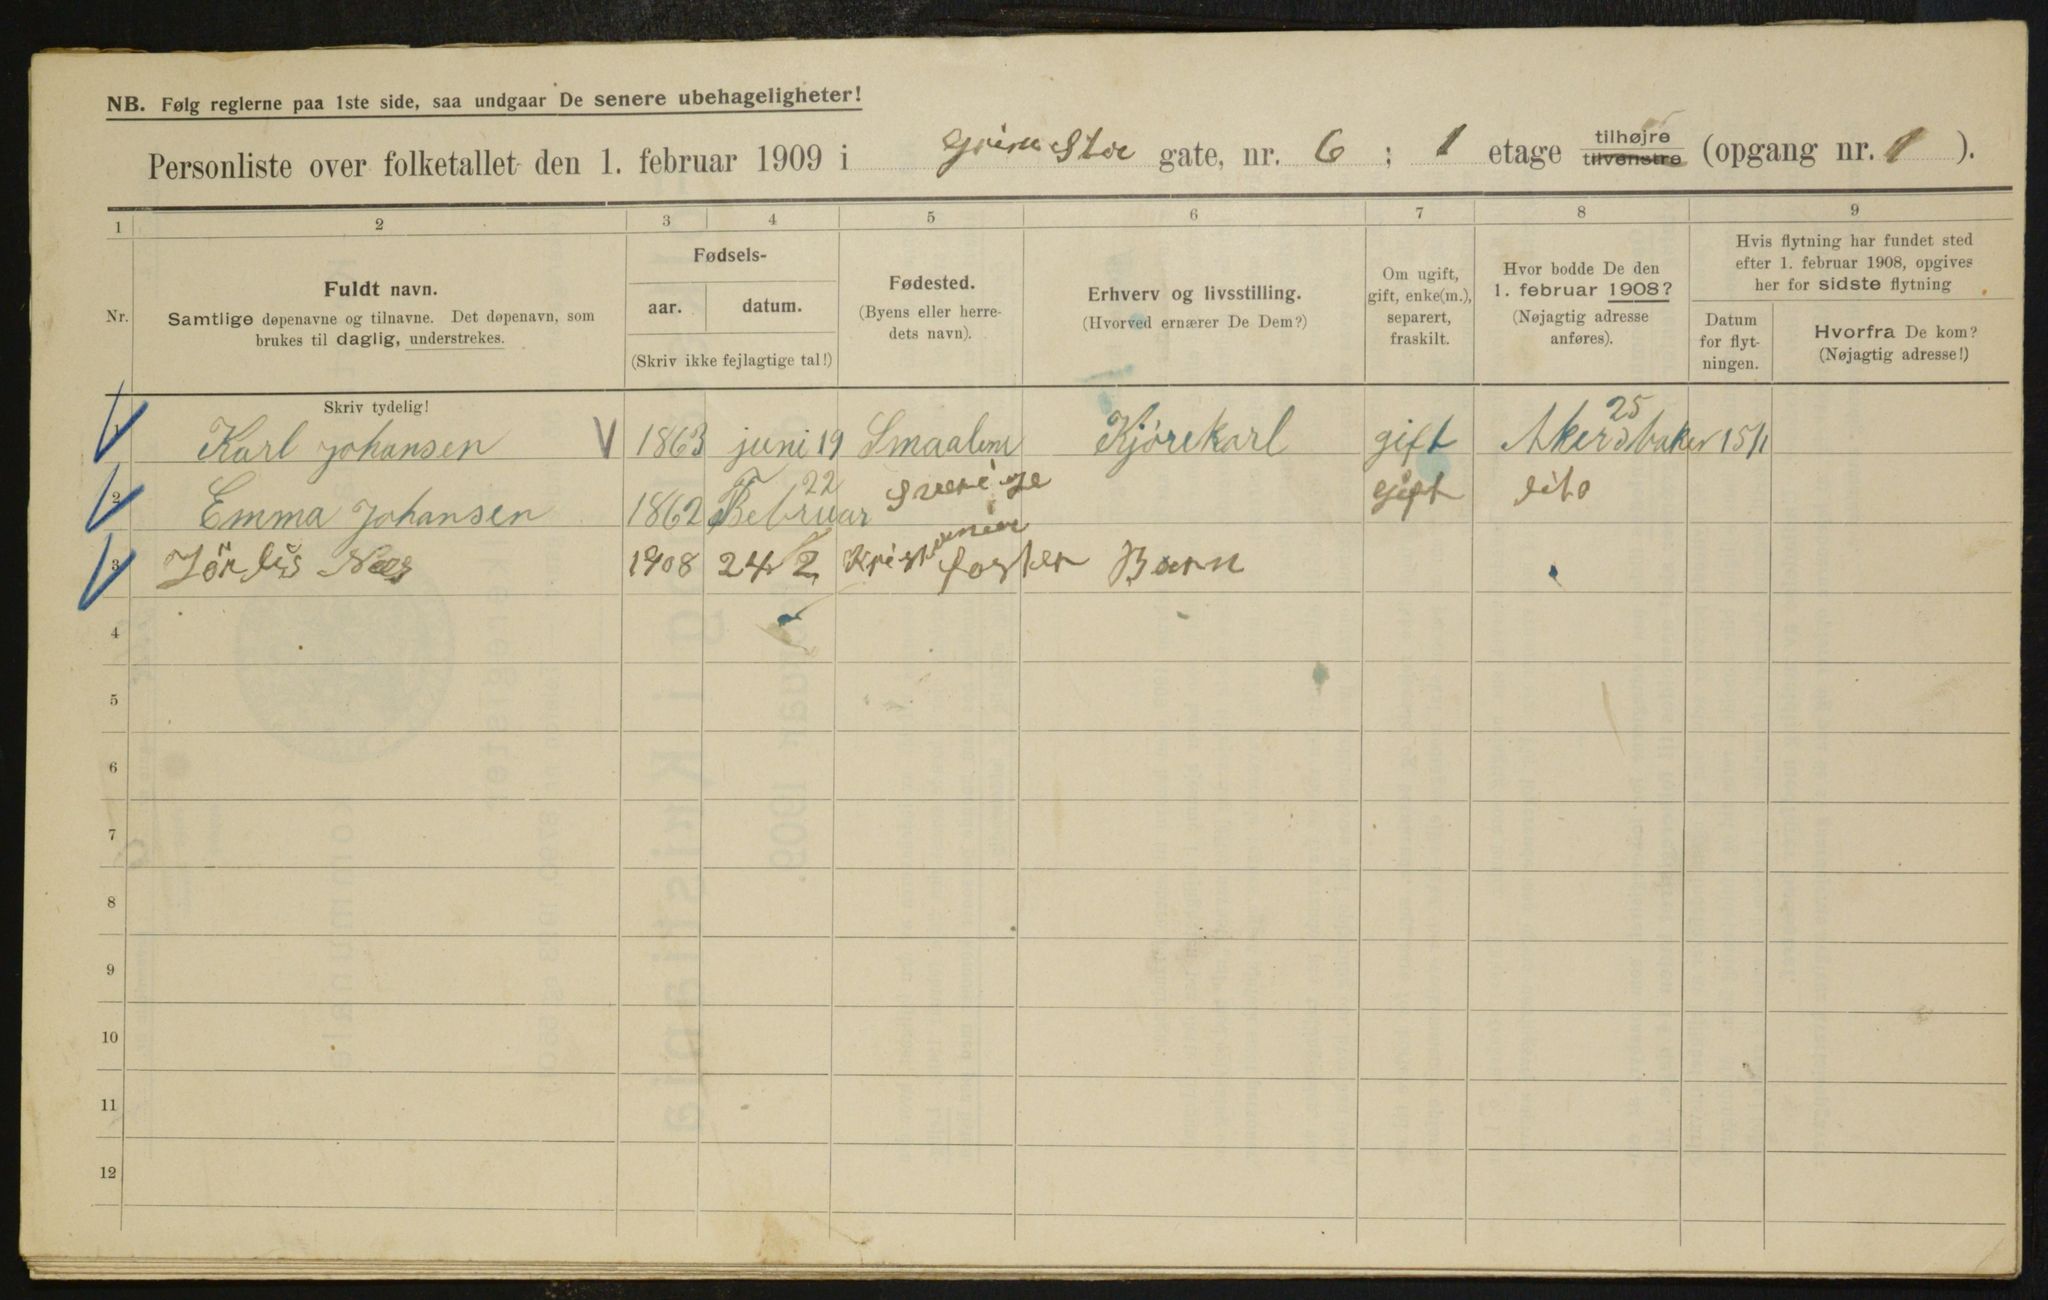 NB. Følg reglerne paa 1ste side, saa undgaar De senere ubehageligheter!
Personliste over folketallet den 1. februar 1909 i Grimstve gate, nr. 6 ; 1 etage tilhøjre tilvenstre (opgang nr. 1 ).
1 2 3 4 5 6 7 8 9
Nr.
Fuldt navn.
Samtlige døpenavne og tilnavne. Det døpenavn, som
brukes til daglig, understrekes.
Fødsels-
aar. datum.
(Skriv ikke fejlagtige tal!)
Fødested.
(Byens eller herre-
dets navn).
Erhverv og livsstilling.
(Hvorved ernærer De Dem?)
Om ugift,
gift, enke(m.),
separert,
fraskilt.
Hvor bodde De den
1. februar 1908?
(Nøjagtig adresse
anføres).
Hvis flytning har fundet sted
efter 1. februar 1908, opgives
her for sidste flytning
Datum
for flyt-
ningen.
Hvorfra De kom?
(Nøjagtig adresse!)
Skriv tydelig!
1 Karl Johansen 1863 juni 19 Smaalene Kjörekarl gift Akersbaken 25 15/1
2 Emma Johansen 1862 Februar 22 Sverige gift dito
3 Jördis Næs 1908 24 2 Kristiania foster Barn
4
5
6
7
8
9
10
11
12